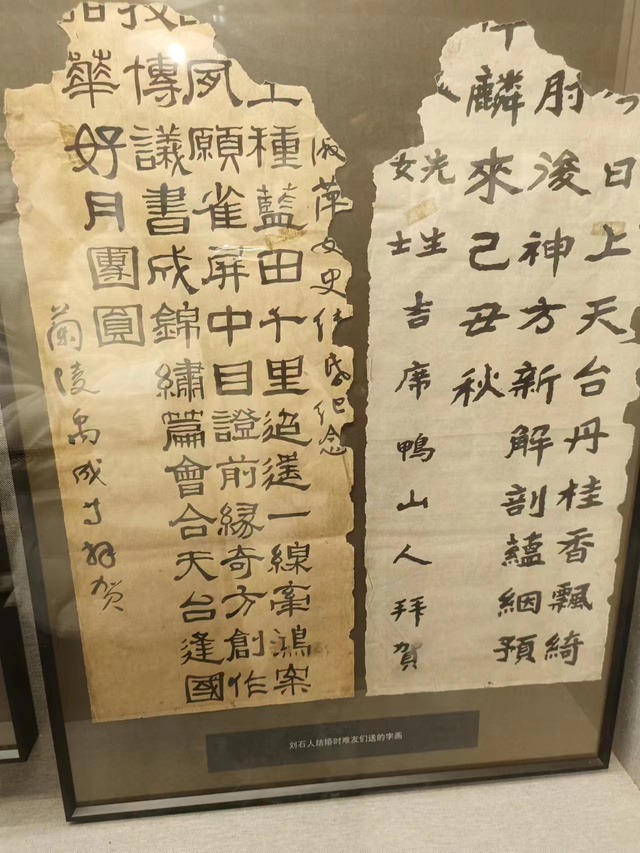 日上天台丹桂香飄綺
肘後神方新解剖蘊絪預
麟來己丑秋
先生
女士
吉席鴨山人拜賀
淑萍女史结婚纪念
上種藍田千里迢遥一線牽鴻案
夙願雀屏中目證前緣奇方創作
技博議書成錦繡篇會合天台逢國
華好月團圓
蘭陵禹成才拜贺
刘石人结婚时难友们送的字画